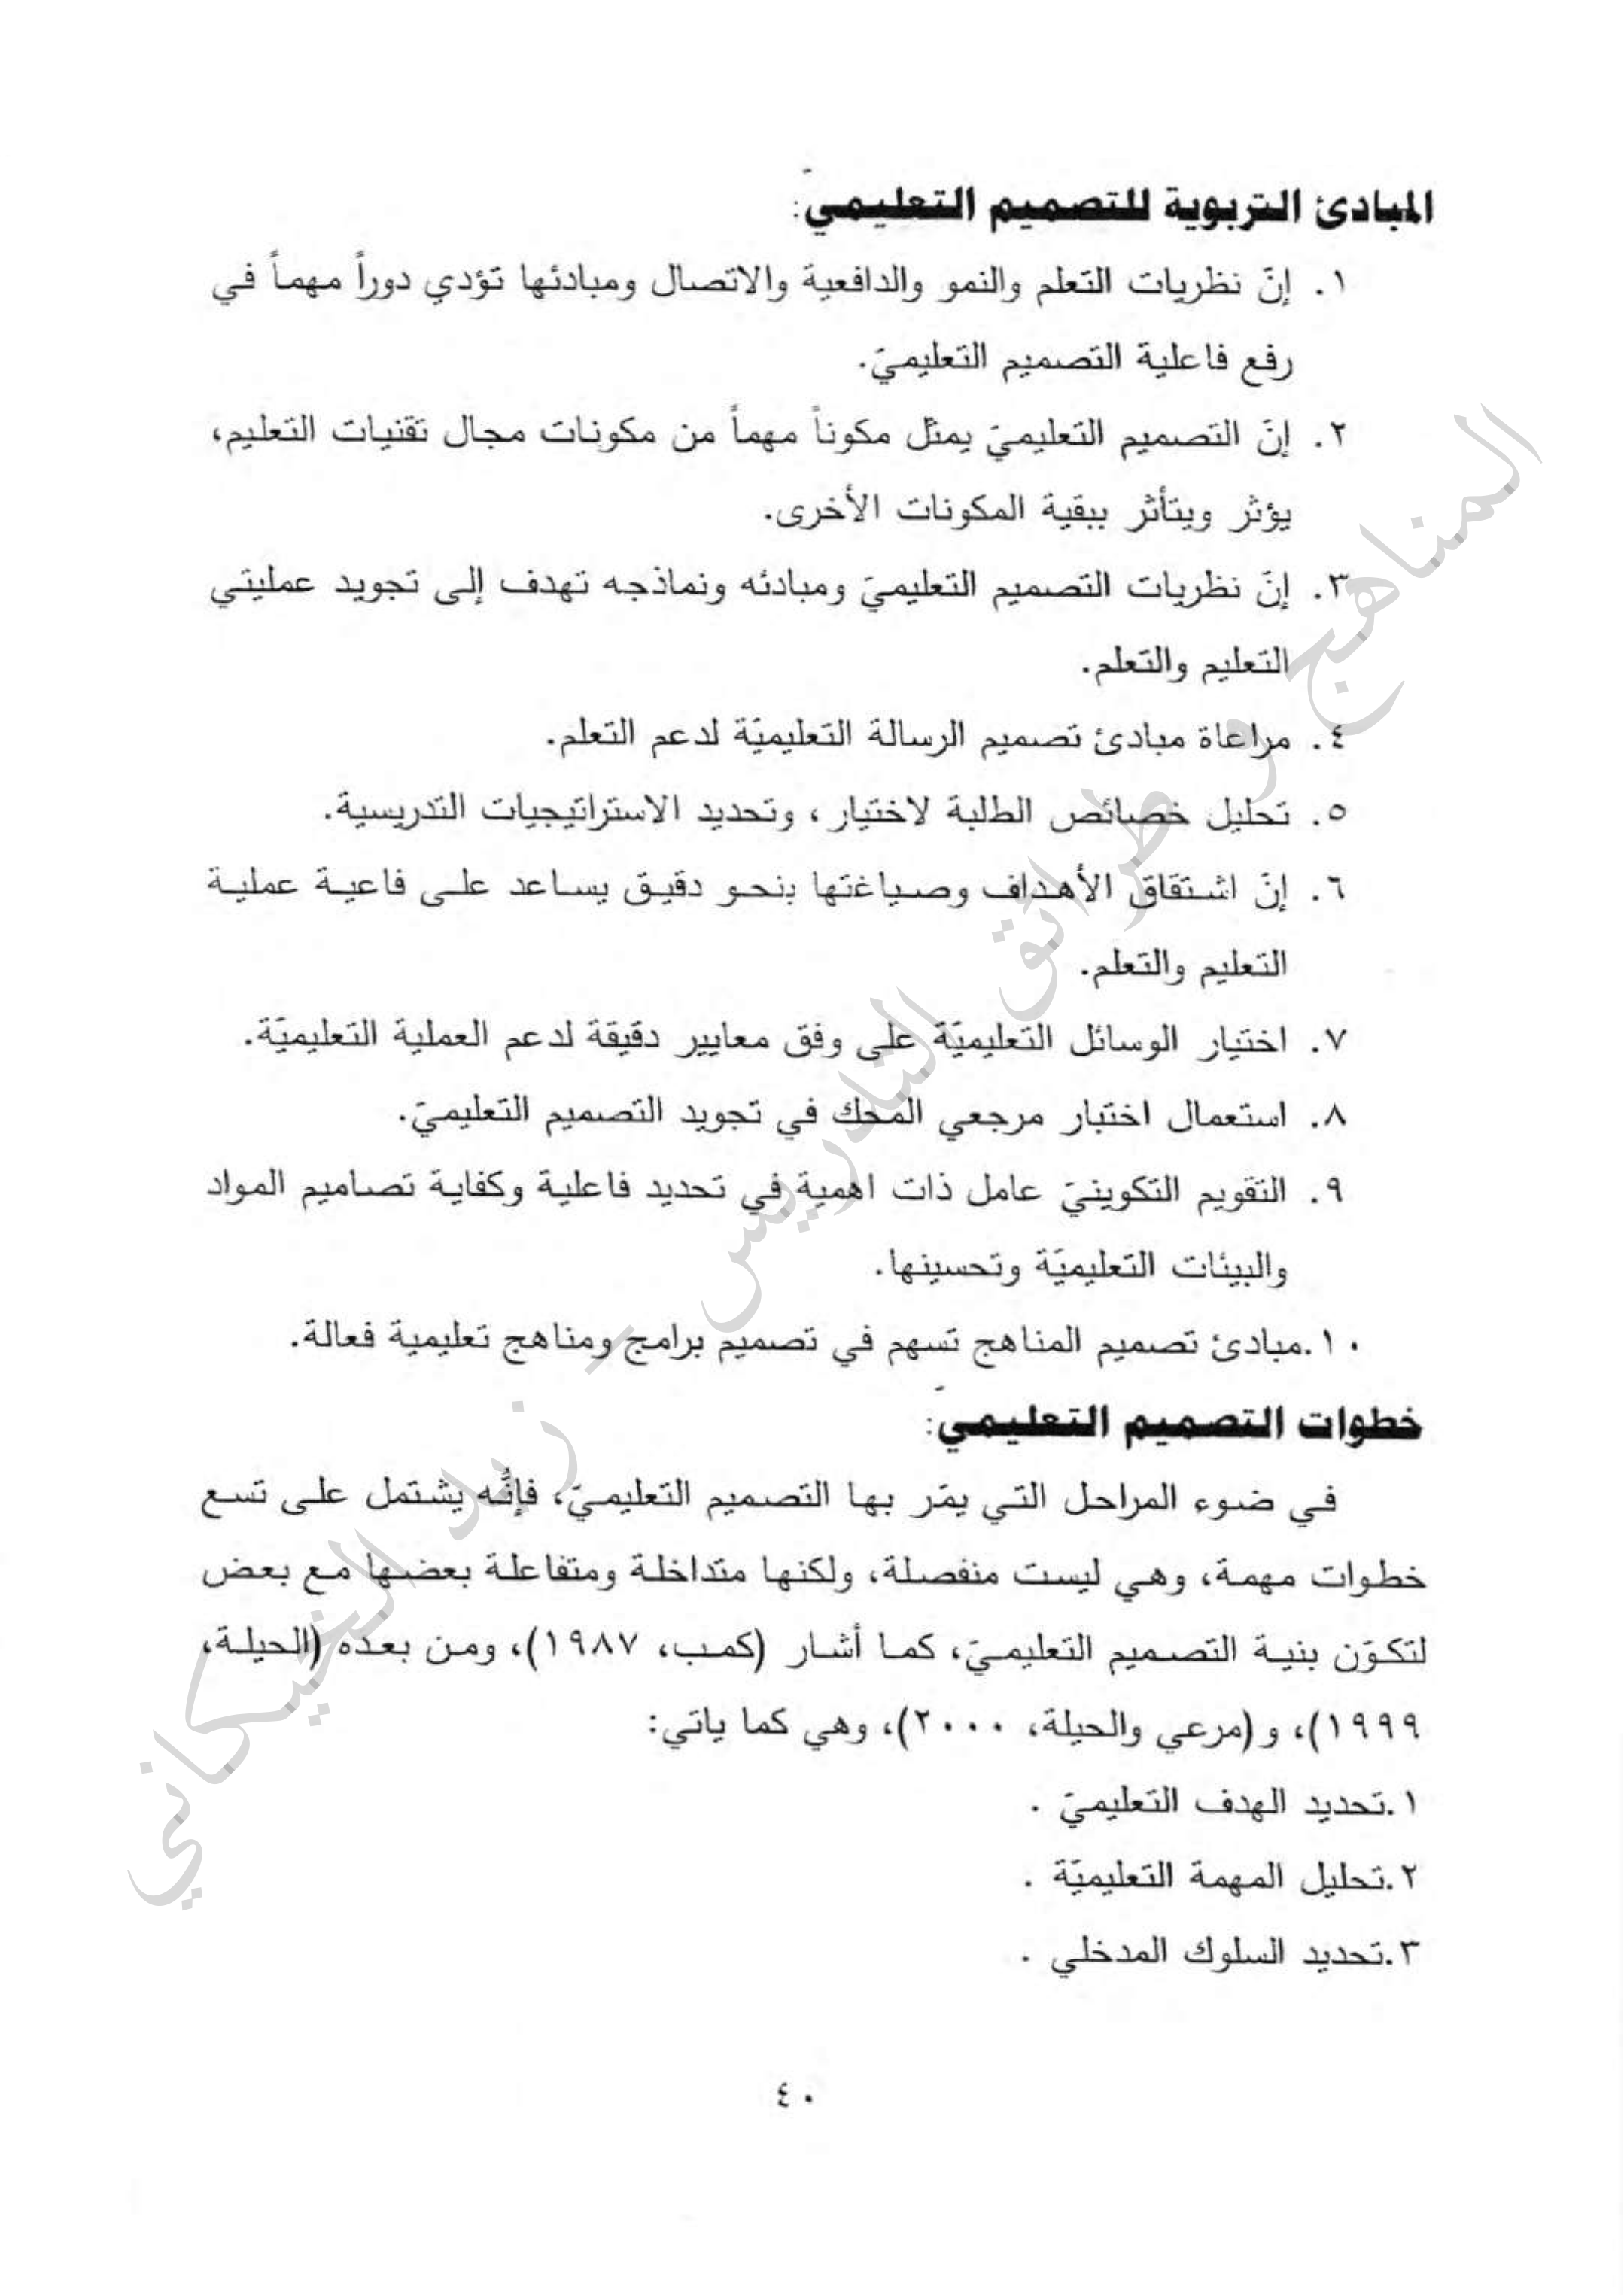 المبادئ التربوية للتصميم التعليميّ:
١. إنّ نظريات التعلم والنمو والدافعية والاتصال ومبادئها تؤدي دوراً مهماً في
رفع فاعلية التصميم التعليميّ.
٢. إنّ التصميم التعليميّ يمثل مكوناً مهماً من مكونات مجال تقنيات التعليم،
يؤثر ويتأثر ببقية المكونات الأخرى.
٣. إنّ نظريات التصميم التعليميّ ومبادئه ونماذجه تهدف إلى تجويد عمليتي
التعليم والتعلم.
٤. مراعاة مبادئ تصميم الرسالة التعليميّة لدعم التعلم.
٥. تحليل خصائص الطلبة لاختيار ، وتحديد الاستراتيجيات التدريسية.
٦. إنّ اشتقاق الأهداف وصياغتها بنحو دقيق يساعد على فاعية عملية
التعليم والتعلم.
٧. اختيار الوسائل التعليميّة على وفق معايير دقيقة لدعم العملية التعليميّة.
٨. استعمال اختبار مرجعي المحك في تجويد التصميم التعليميّ.
٩. التقويم التكوينيّ عامل ذات اهمية في تحديد فاعلية وكفاية تصاميم المواد
والبيئات التعليميّة وتحسينها.
١٠.مبادئ تصميم المناهج تسهم في تصميم برامج ومناهج تعليمية فعالة.
خطوات التصميم التعليميّ:
في ضوء المراحل التي يمّر بها التصميم التعليميّ، فإنَّه يشتمل على تسع
خطوات مهمة، وهي ليست منفصلة، ولكنها متداخلة ومتفاعلة بعضها مع بعض
لتكوّن بنية التصميم التعليميّ، كما أشار (كمب، ١٩٨٧)، ومن بعده (الحيلة،
١٩٩٩)، و(مرعي والحيلة، ٢٠٠٠)، وهي كما ياتي:
١.تحديد الهدف التعليميّ .
٢.تحليل المهمة التعليميّة .
٣.تحديد السلوك المدخلي .
٤٠
المناهج و طرائق التدريس - زيد الخيكاني